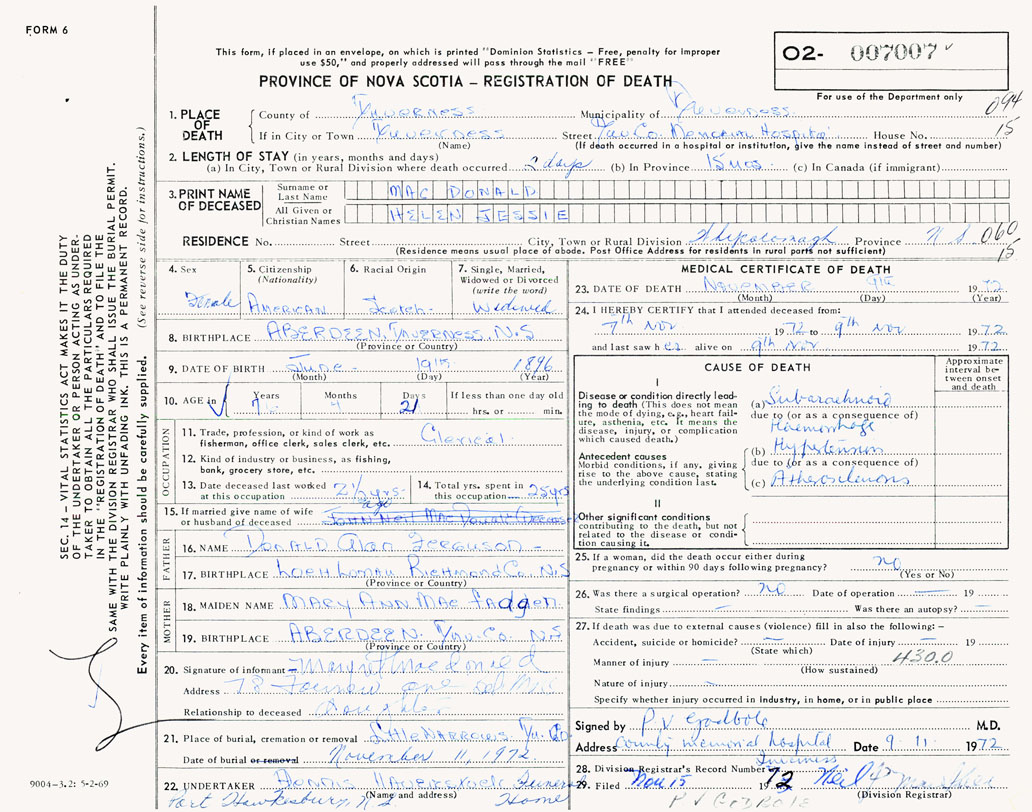 FORM 6
This form, if placed in an envelope, on which is printed "Dominion Statistics – Free, penalty for improper
use $50," and properly addressed will pass through the mail "FREE"
PROVINCE OF NOVA SCOTIA – REGISTRATION OF DEATH
O2- 007007
For use of the Department only
094
15
1. PLACE OF DEATH
County of Inverness Municipality of Inverness
If in City or Town Inverness Street Inv Co. Memorial Hospital House No.
(Name) (If death occurred in a hospital or institution, give the name instead of street and number)
2. LENGTH OF STAY (in years, months and days)
(a) In City, Town or Rural Division where death occurred 2 days (b) In Province 15 yrs (c) In Canada (if immigrant)
3. PRINT NAME OF DECEASED
Surname or Last Name MAC DONALD
All Given or Christian Names HELEN JESSIE
RESIDENCE No. Street City, Town or Rural Division Whycocomagh Province N.S. 060
15
(Residence means usual place of abode. Post Office Address for residents in rural parts not sufficient)
4. Sex Female
5. Citizenship (Nationality) American
6. Racial Origin Scotch
7. Single, Married, Widowed or Divorced (write the word) Widowed
8. BIRTHPLACE ABERDEEN, INVERNESS, N.S
(Province or Country)
9. DATE OF BIRTH June 19th 1896
(Month) (Day) (Year)
10. AGE in Years Months 4 Days 21 If less than one day old hrs. or min.
OCCUPATION
11. Trade, profession, or kind of work as
fisherman, office clerk, sales clerk, etc. Clerical
12. Kind of industry or business, as fishing,
bank, grocery store, etc.
13. Date deceased last worked
at this occupation 2½ yrs. ago
14. Total yrs. spent in
this occupation 25 yrs
15. If married give name of wife
or husband of deceased John Neil MacDonald (Deceased
FATHER
16. NAME Donald Alan Ferguson
17. BIRTHPLACE Loch Loman Richmond Co. N.S
(Province or Country)
MOTHER
18. MAIDEN NAME Mary Ann MacFadgen
19. BIRTHPLACE ABERDEEN Inv. Co. N.S
(Province or Country)
20. Signature of informant Mary Macdonald
Address 78
Relationship to deceased Daughter
21. Place of burial, cremation or removal Little Narrows
Date of burial or removal November 11, 1972
22. UNDERTAKER Funeral
(Name and address) Port Hawkesbury, N.S. Home
MEDICAL CERTIFICATE OF DEATH
23. DATE OF DEATH November 9th 1972
(Month) (Day) (Year)
24. I HEREBY CERTIFY that I attended deceased from:
7th Nov 1972 to 9th Nov 1972
and last saw her alive on 9th Nov 1972
CAUSE OF DEATH
Approximate interval between onset and death
I
Disease or condition directly leading to death (This does not mean the mode of dying, e.g., heart failure, asthenia, etc. It means the disease, injury, or complication which caused death.)
(a) Subarachnoid
due to (or as a consequence of)
Haemorrhage
Antecedent causes
Morbid conditions, if any, giving rise to the above cause, stating the underlying condition last.
(b) Hypertension
due to (or as a consequence of)
(c) Atherosclerosis
II
Other significant conditions
contributing to the death, but not related to the disease or condition causing it.
25. If a woman, did the death occur either during
pregnancy or within 90 days following pregnancy? no
(Yes or No)
26. Was there a surgical operation? no Date of operation — 19
State findings — Was there an autopsy? —
27. If death was due to external causes (violence) fill in also the following: –
Accident, suicide or homicide? — Date of injury — 19
(State which)
430.0
Manner of injury —
(How sustained)
Nature of injury —
Specify whether injury occurred in industry, in home, or in public place
Signed by P V Godbole M.D.
Address County memorial hospital Date 9. 11. 1972
Inverness
28. Division Registrar's Record Number
29. Filed Nov 15 1972 Neil
(Division Registrar)
P V GODBOLE
SEC. 14 – VITAL STATISTICS ACT MAKES IT THE DUTY
OF THE UNDERTAKER OR PERSON ACTING AS UNDER-
TAKER TO OBTAIN ALL THE PARTICULARS REQUIRED
IN THE "REGISTRATION OF DEATH" AND TO FILE THE
SAME WITH THE DIVISION REGISTRAR WHO SHALL ISSUE THE BURIAL PERMIT.
WRITE PLAINLY WITH UNFADING INK. THIS IS A PERMANENT RECORD.
Every item of information should be carefully supplied. (See reverse side for instructions.)
9004-3.2: 5-2-69